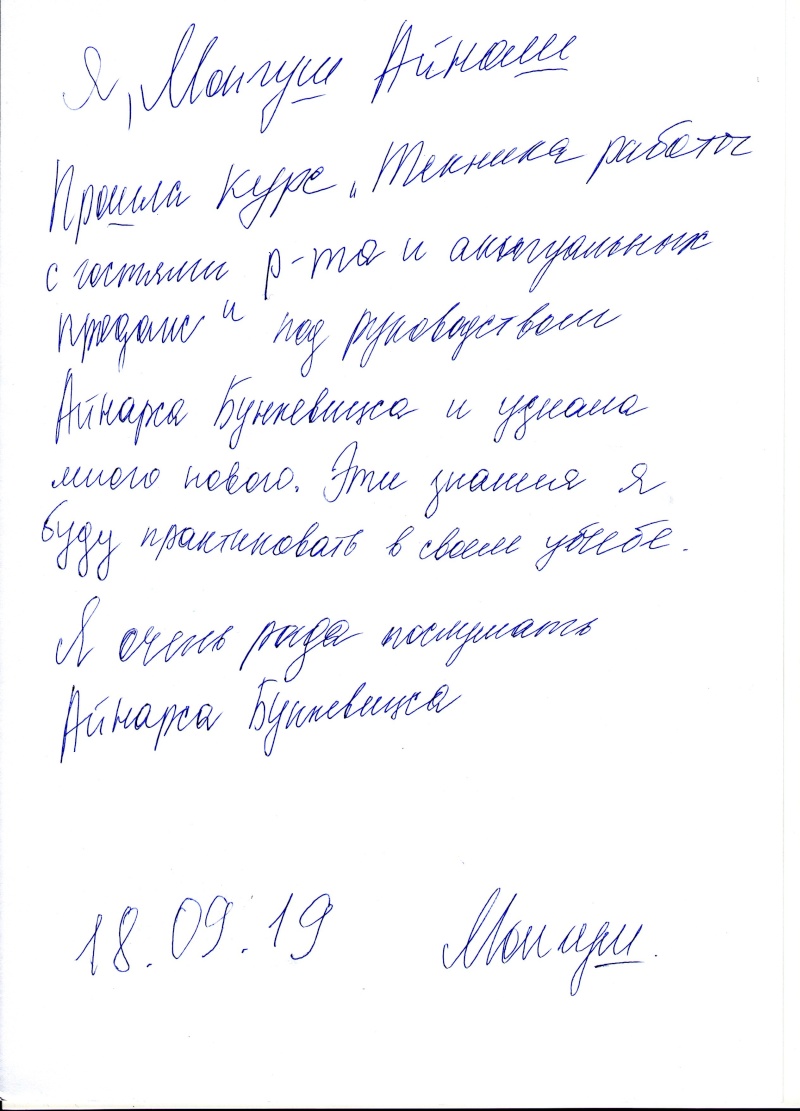 Я, Монгуш Айнаш
Прошла курс „Техника работы
с гостями р-та и актуальных
продаж" под руководством
Айнарса Бункевицса и узнала
много нового. Эти знания я
буду практиковать в своем
Я очень рада послушать
Айнарса Бункевицса
18.09.19 Монгуш.